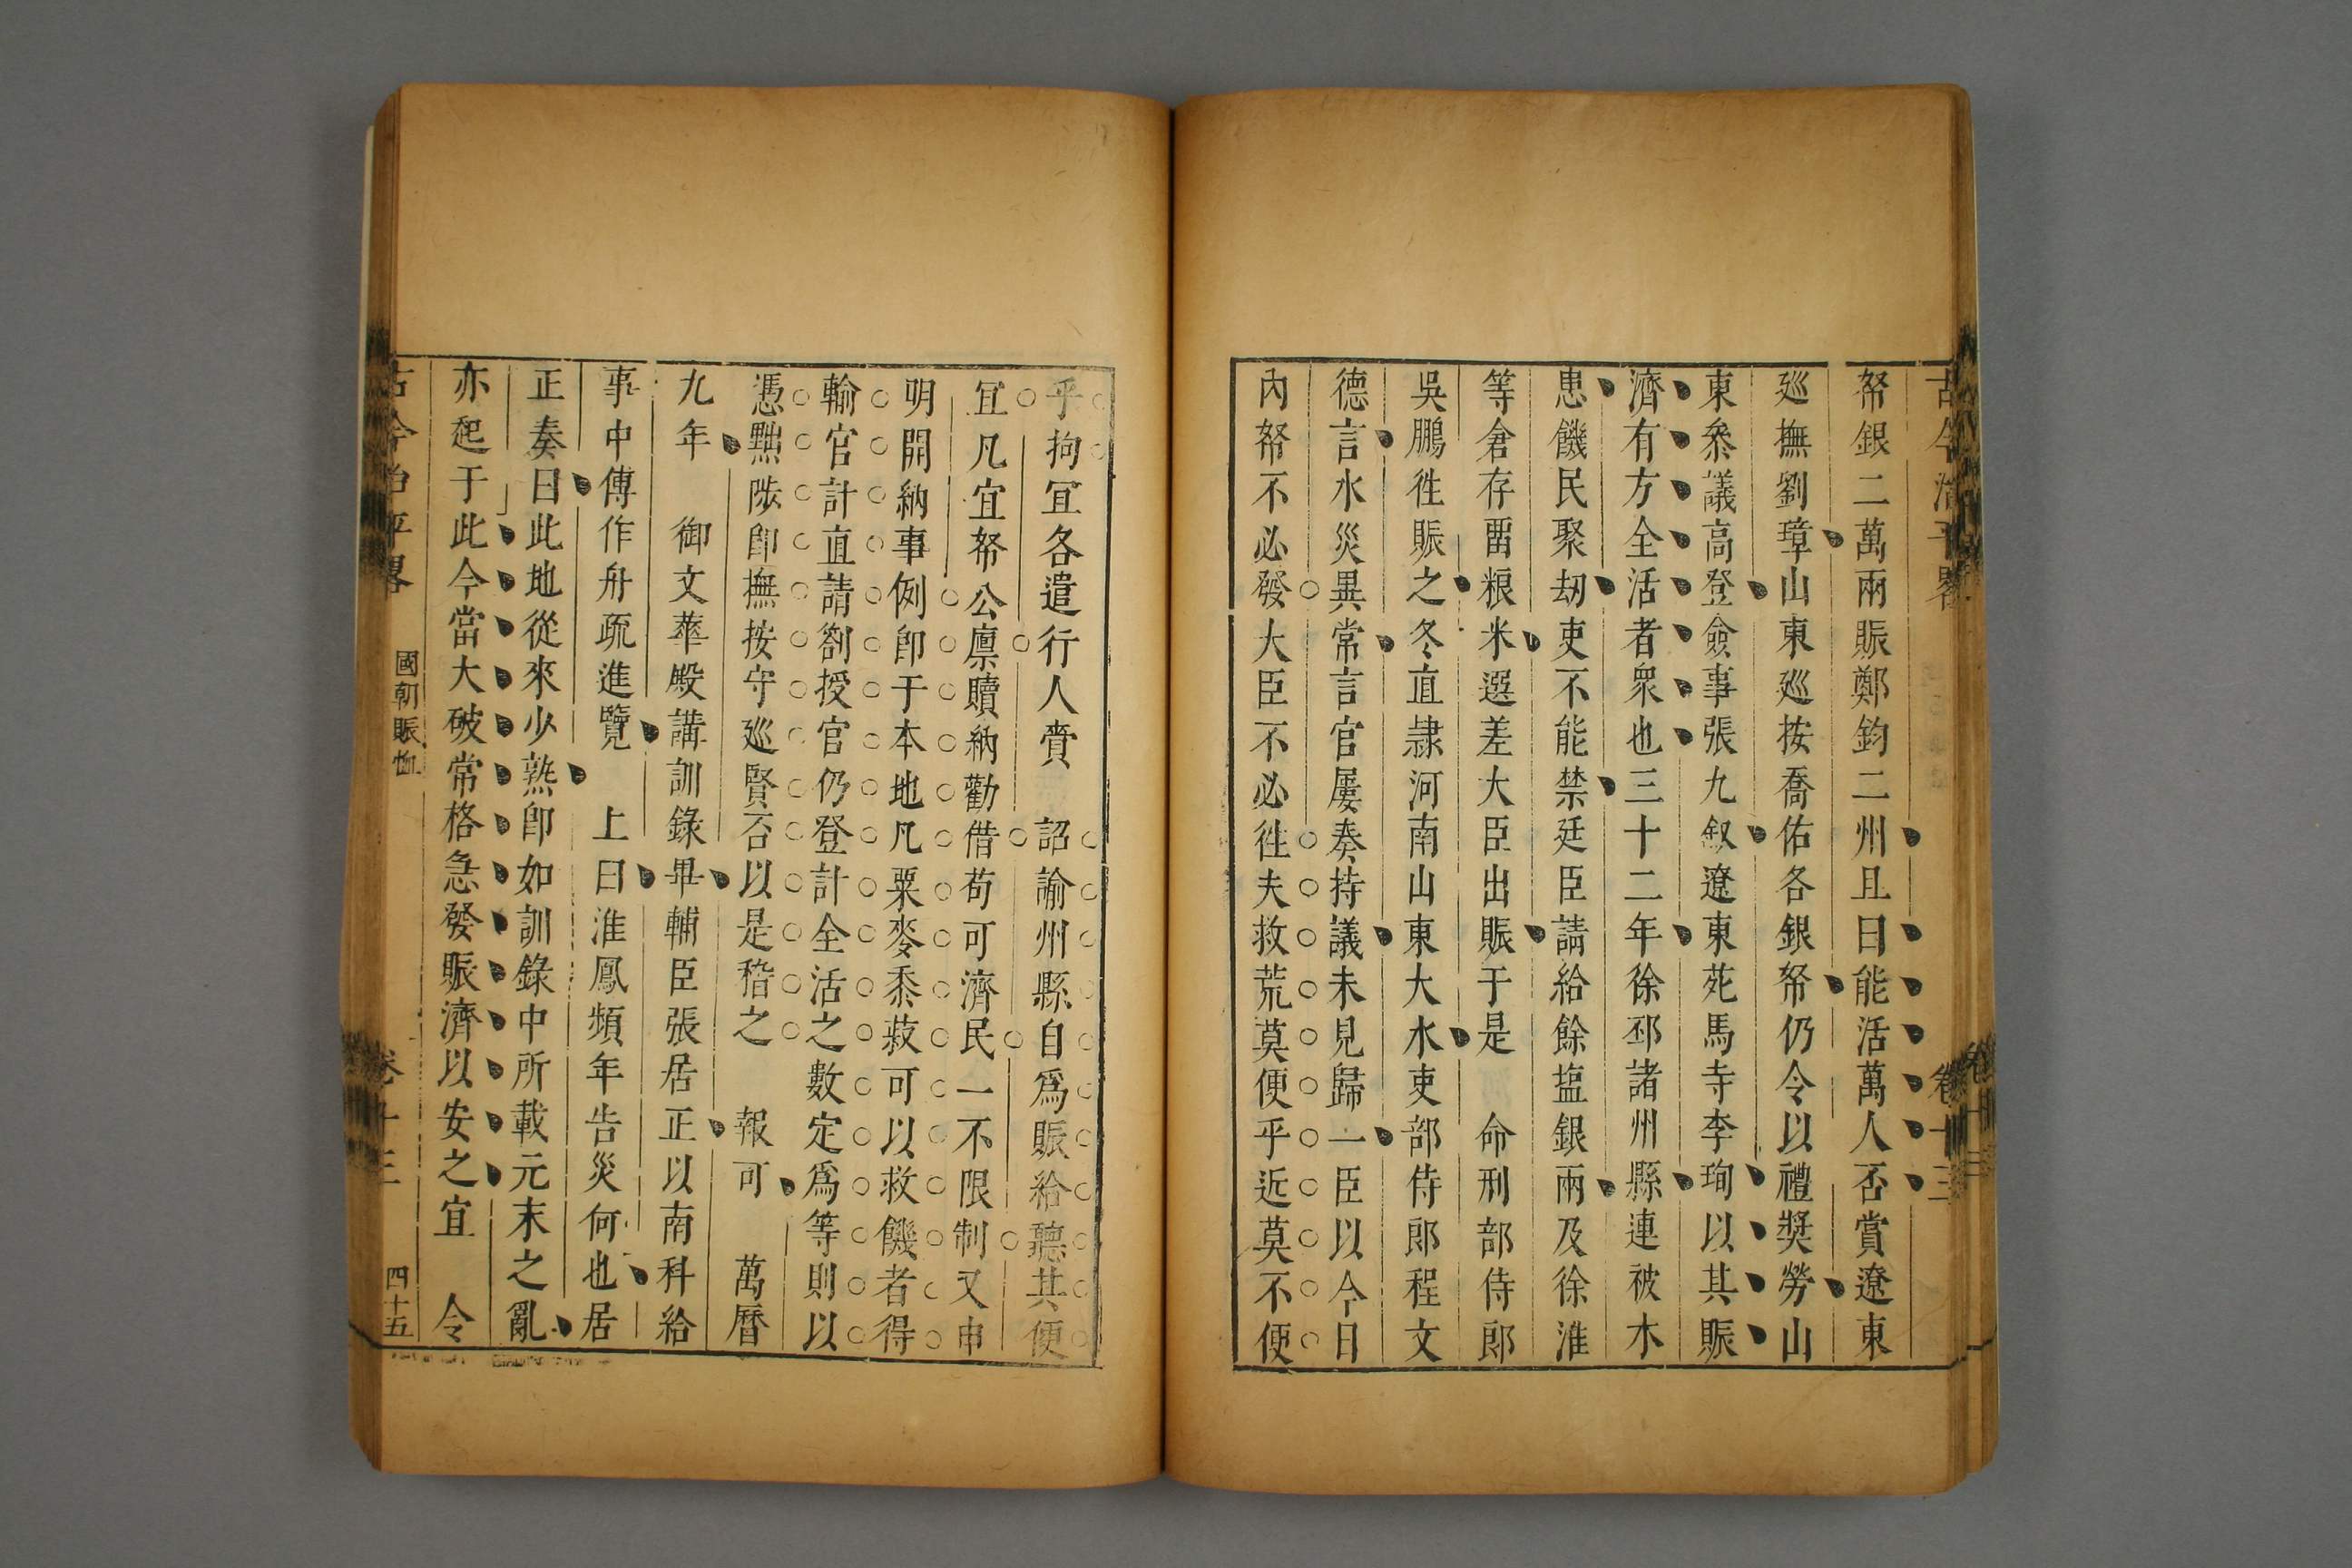 古今治平畧 卷十三
帑銀二萬兩賑鄭鈞二州且曰能活萬人否賞遼東
廵撫劉璋山東廵按喬佑各銀帑仍令以禮獎勞山
東叅議高登僉事張九叙遼東苑馬寺李珣以其賑
濟有方全活者衆也三十二年徐邳諸州縣連被水
患饑民聚刼吏不能禁廷臣請給餘塩銀兩及徐淮
等倉存畱粮米選差大臣出賑于是 命刑部侍郎
吳鵬徃賑之冬直隷河南山東大水吏部侍郎程文
德言水災異常言官屢奏持議未見歸一臣以今日
內帑不必發大臣不必徃夫救荒莫便乎近莫不便
乎拘冝各遣行人賫 詔諭州縣自爲賑給聽其便
冝凡宜帑公廪贖納勸借苟可濟民一不限制又申
明開納事例卽于本地凡粟麥黍菽可以救饑者得
輸官計直請劄授官仍登計全活之數定爲等則以
憑黜陟卽撫按守廵賢否以是稽之 報可 萬曆
九年 御文華殿講訓錄畢輔臣張居正以南科給
事中傅作舟疏進覽 上曰淮鳳頻年告災何也居
正奏曰此地從來少熟卽如訓錄中所載元末之亂
亦起于此今當大破常格急發賑濟以安之宜 令
古今治平畧 國朝賑恤 卷十三 四十五